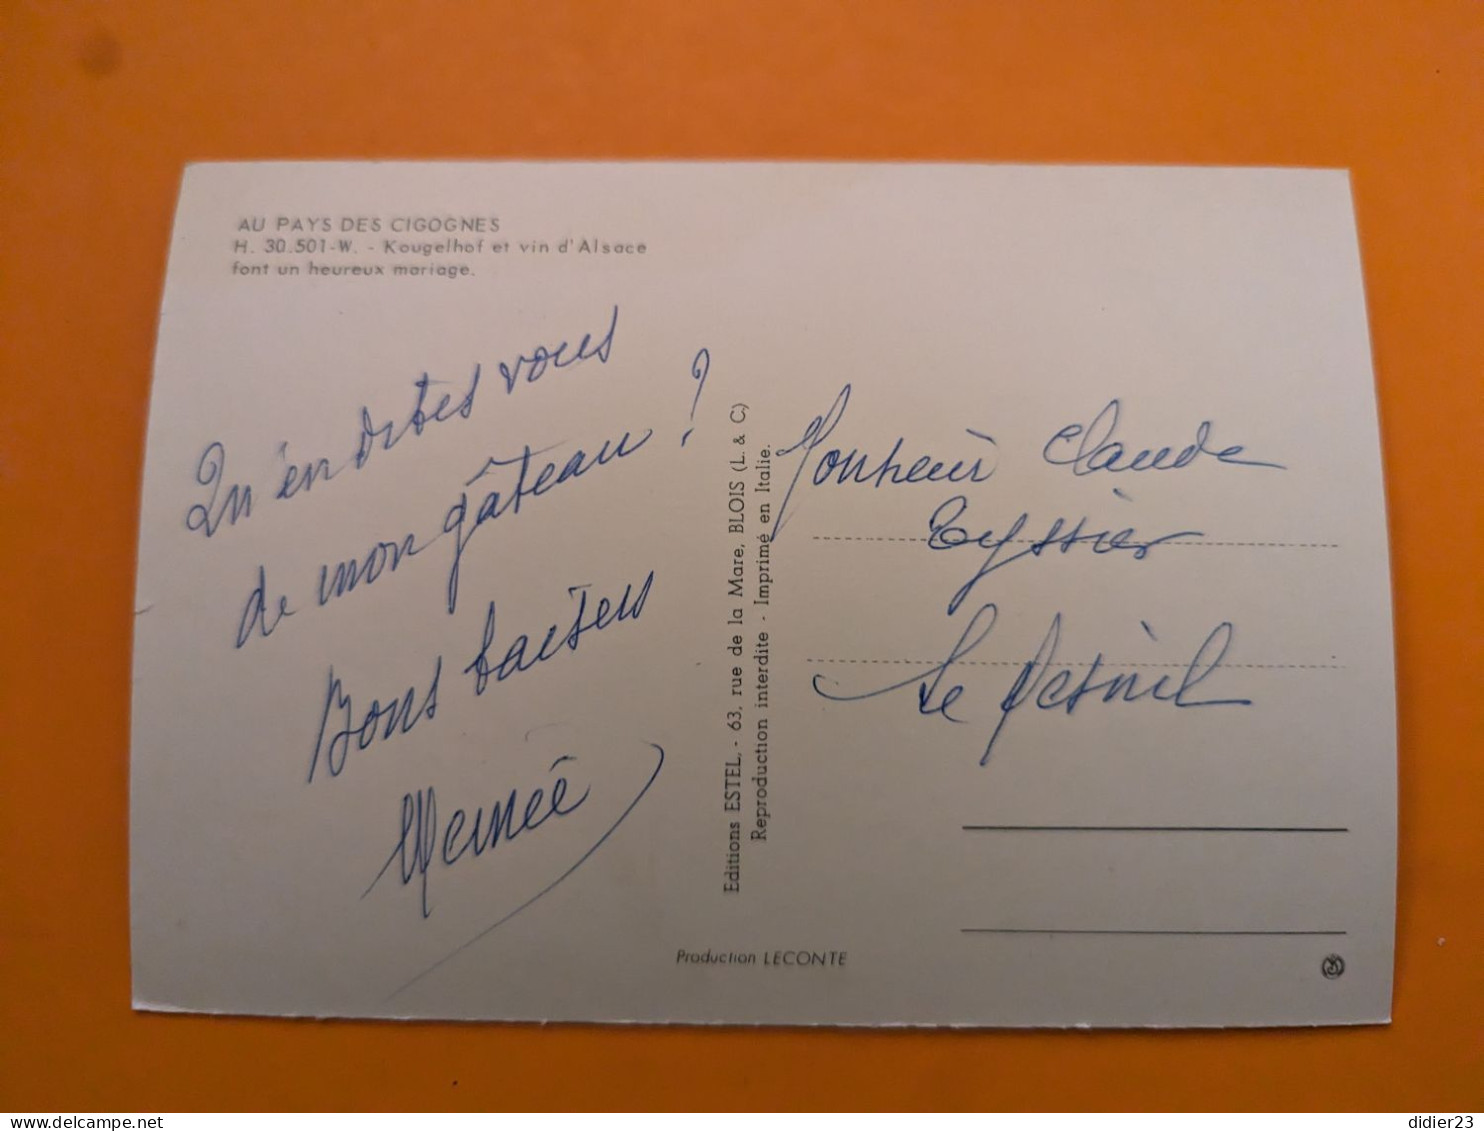 AU PAYS DES CIGOGNES
H. 30.501-W. - Kougelhof et vin d'Alsace
font un heureux mariage.
Qu'en dites vous
de mon gâteau ?
Bons baisers
Editions ESTEL, - 63, rue de la Mare, BLOIS (L. & C.)
Reproduction interdite - Imprimé en Italie.
Monsieur Claude
Teyssier
Le Mesnil
Production LECONTE
didier23